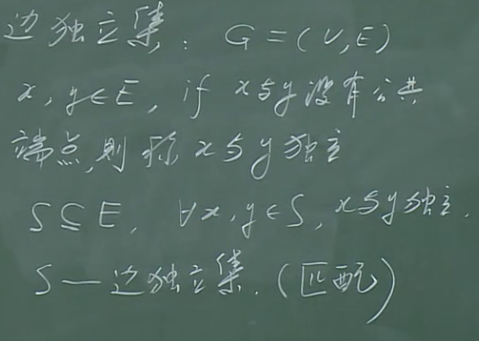 边独立集: G=(V,E)
x,y∈E, if x与y没有公共
端点,则称x与y独立
S⊆E, ∀x,y∈S, x与y独立.
S—边独立集.(匹配)